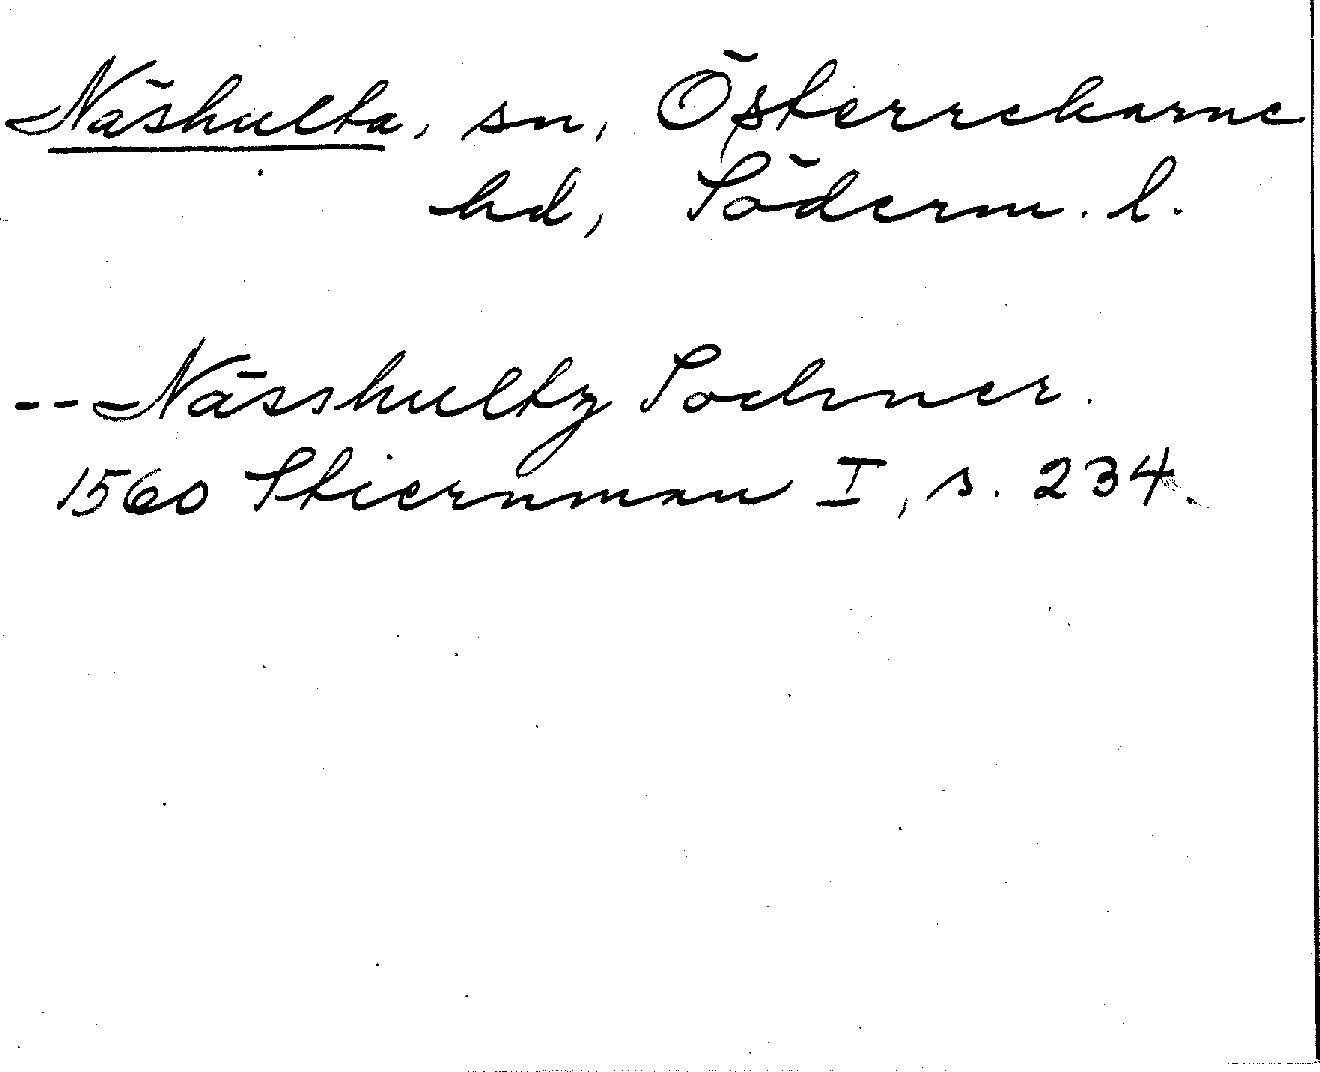 Näshulta, sn, Österrekarne
hd, Söderm. l.
-- Nässhultz Sochner.
1560 Stiernman I, s. 234.